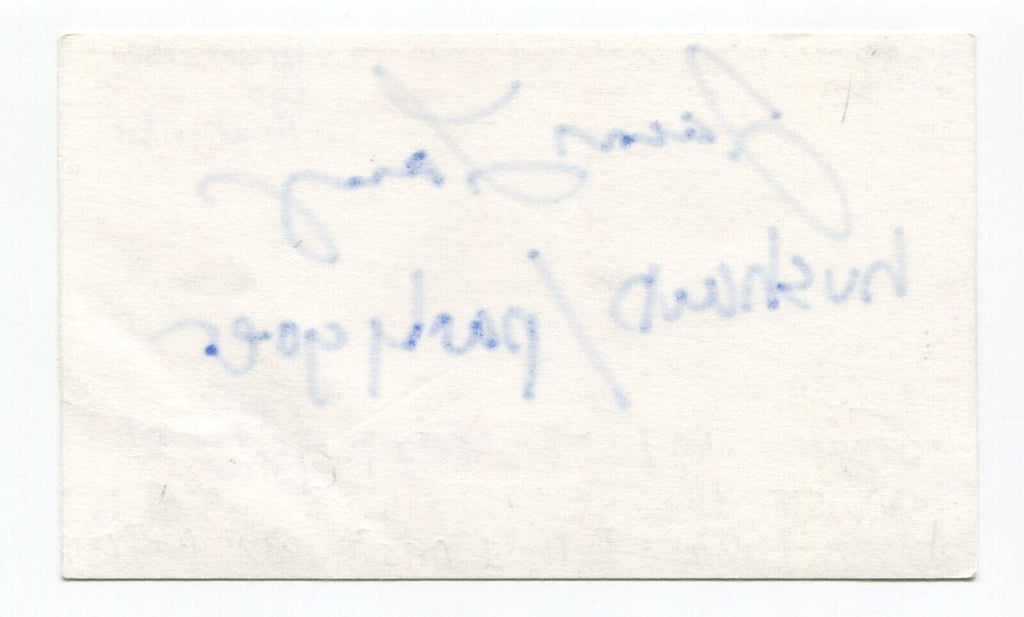 James Lang
husband / partygoer